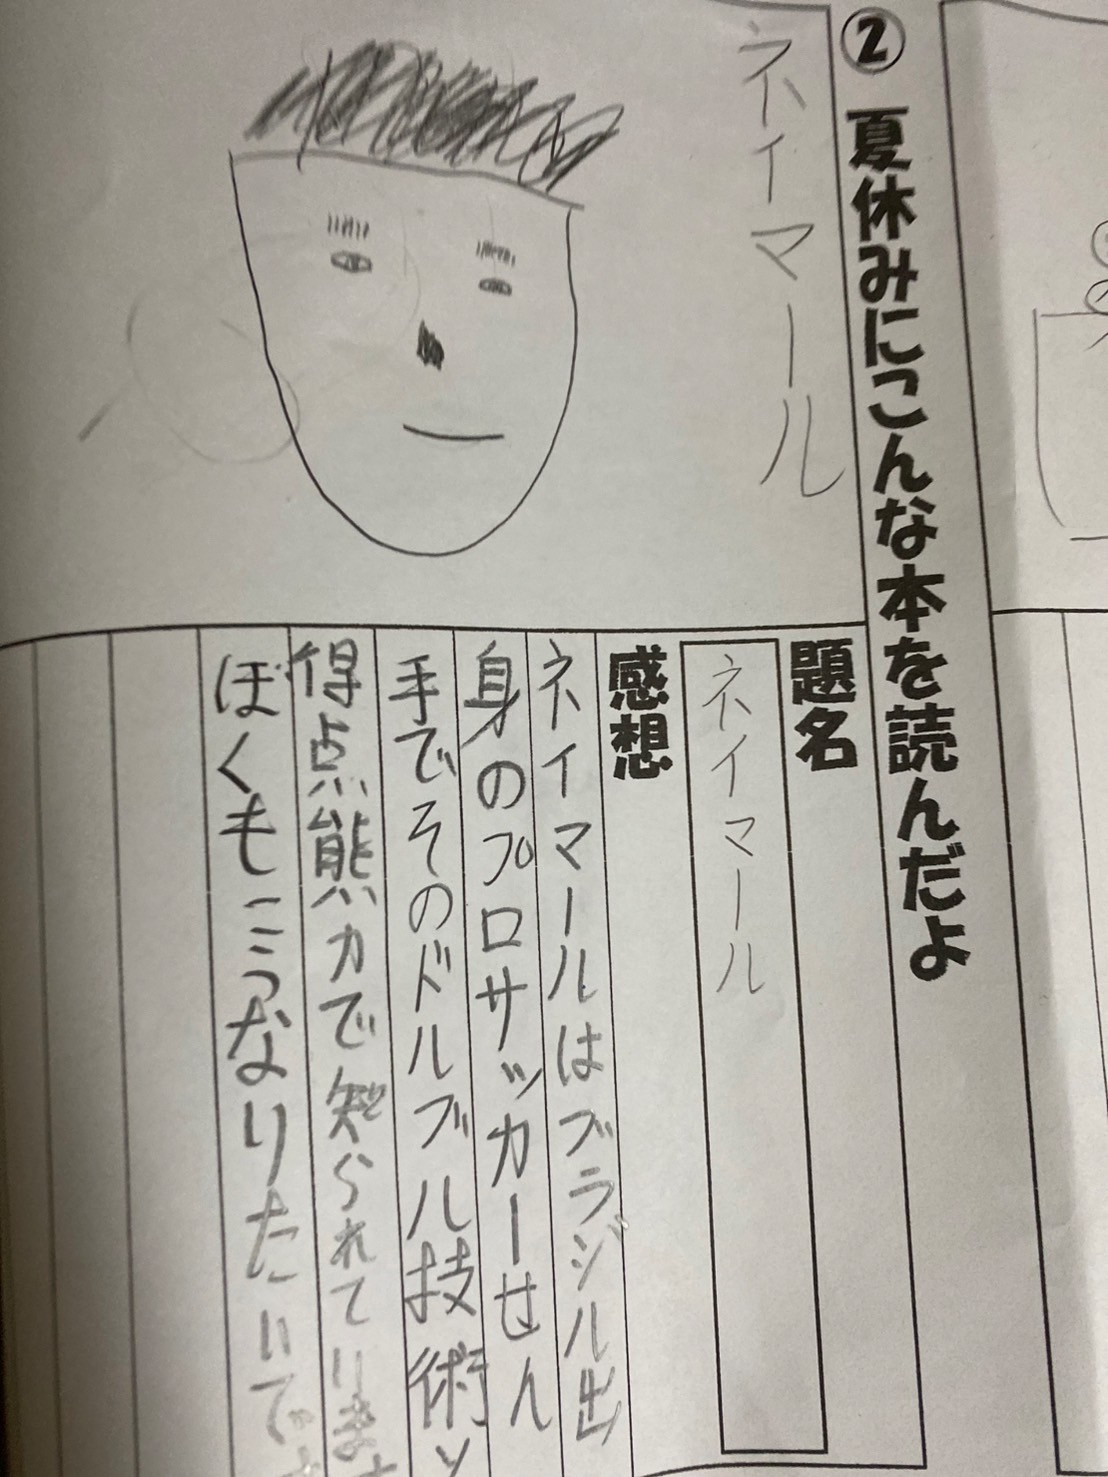 ② 夏休みにこんな本を読んだよ
ネイマール
題名
ネイマール
感想
ネイマールはブラジル出
身のプロサッカーせん
手でそのドルブル技術
得点熊力で知られています
ぼくもこうなりたいです